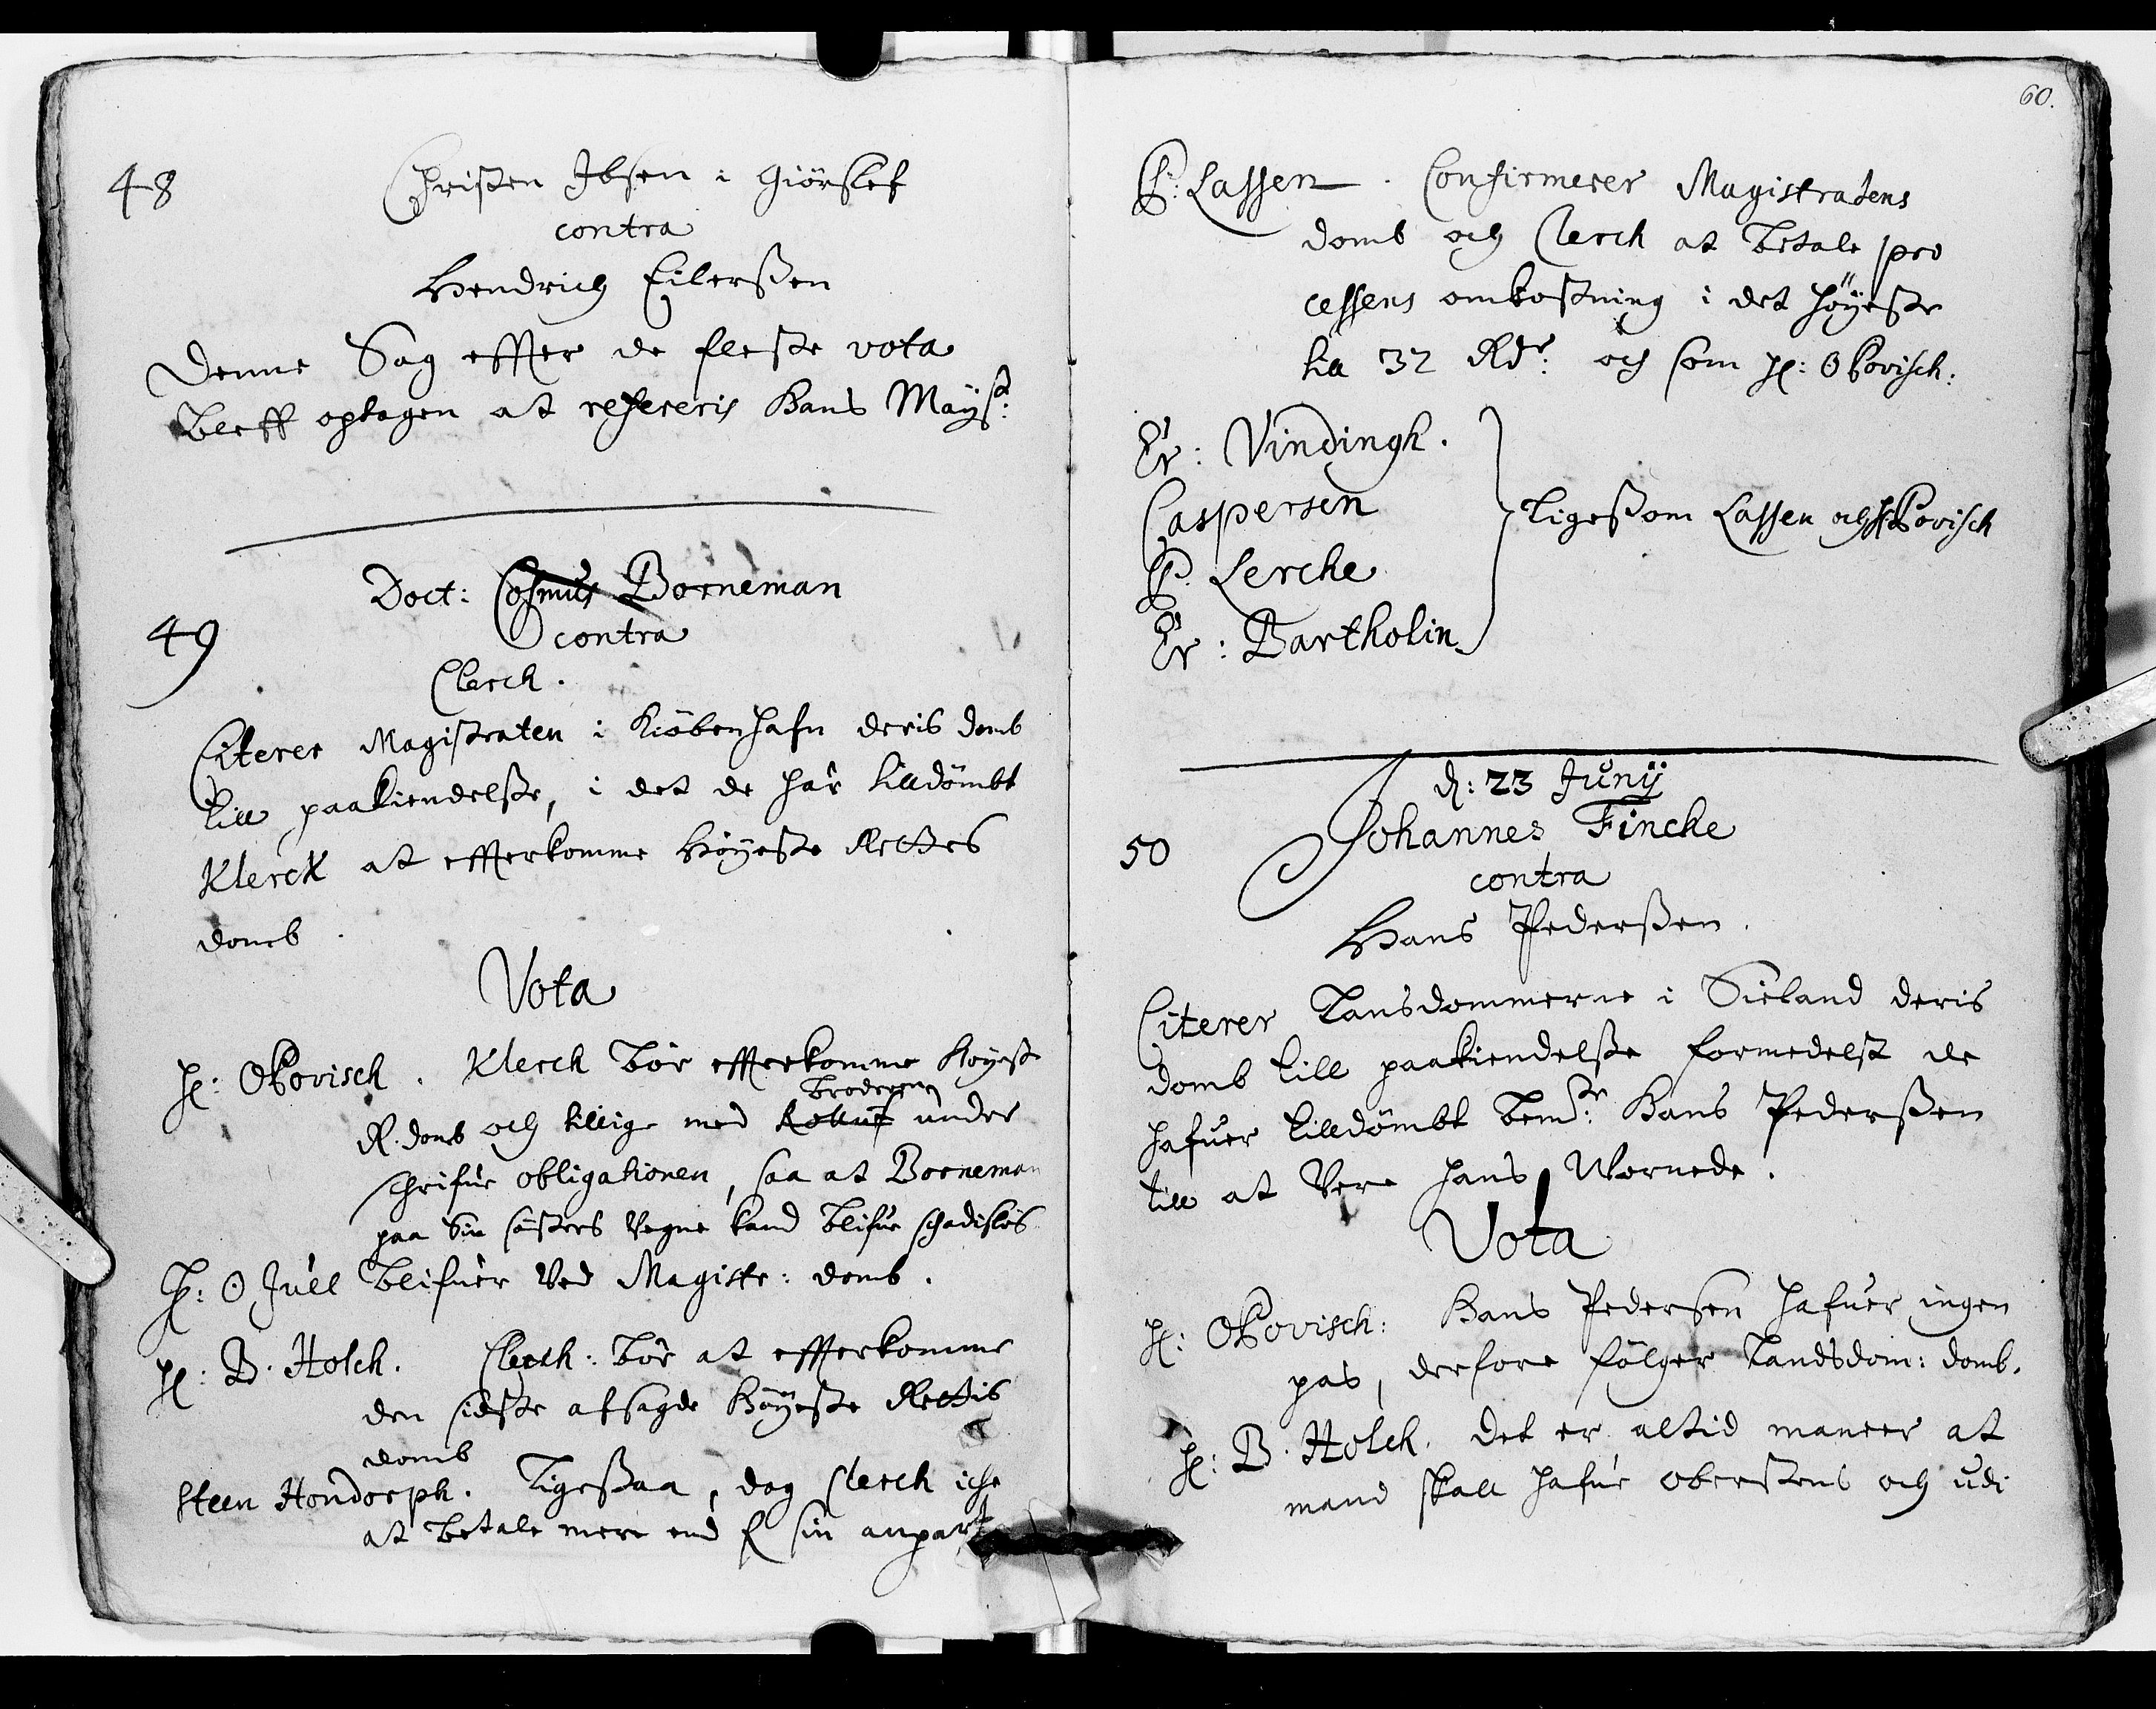 48
Christen Ibsen i Giörslef
contra
Hendrich Eilerßen
Denne Sag effter de fleste vota
bleff optagen at refereris Hans Mayst:
49
Doct: Cosmus Borneman
contra
Clerch.
Citerer Magistraten i Kiöbenhafn deris domb
till paakiendelße, i det de har tilldömbt
Klerck at effterkomme Höyeste Rettes
domb.
Vota
H: OPovisch. Klerch bör effterkomme Höyest
Broderen
R. domb och tillig med under
schrifue obligationen, saa at Borneman
paa Sin södsters Vegne kand blifue schadislös
H: O Juel blifuer Ved Magistr: domb.
H: B. Holch. Clerch: bör at effterkomme
den sidste afsagde Höyeste Rettis
domb
Steen Hondorph. Ligeßaa, dog Clerch iche
at betale mere end f sin anpart
60.
P: Lassen. Confirmerer Magistratens
domb och Clerch at betale pro
cessens omkostning i det höyeste
till 32 Rdr: och som H: OPovisch:
Er: Vindingh.
Caspersen
P. Lerche
Er: Bartholin
Ligeßom Lassen och H: Povisch
d: 23 Junij
50
Johannes Fincke
contra
Hans Pederßen.
Citerer Lansdommerne i Sieland deris
domb till paakiendelße formedelst de
hafuer tilldömbt bemte: Hans Pederßen
till at Vere hans Wornede.
Vota
H: OPovisch: Hans Pedersen hafuer ingen
pas, derfore fölger Landsdom: domb.
H: B. Holch. det er altid maneer at
mand skall hafue oberstens och udi